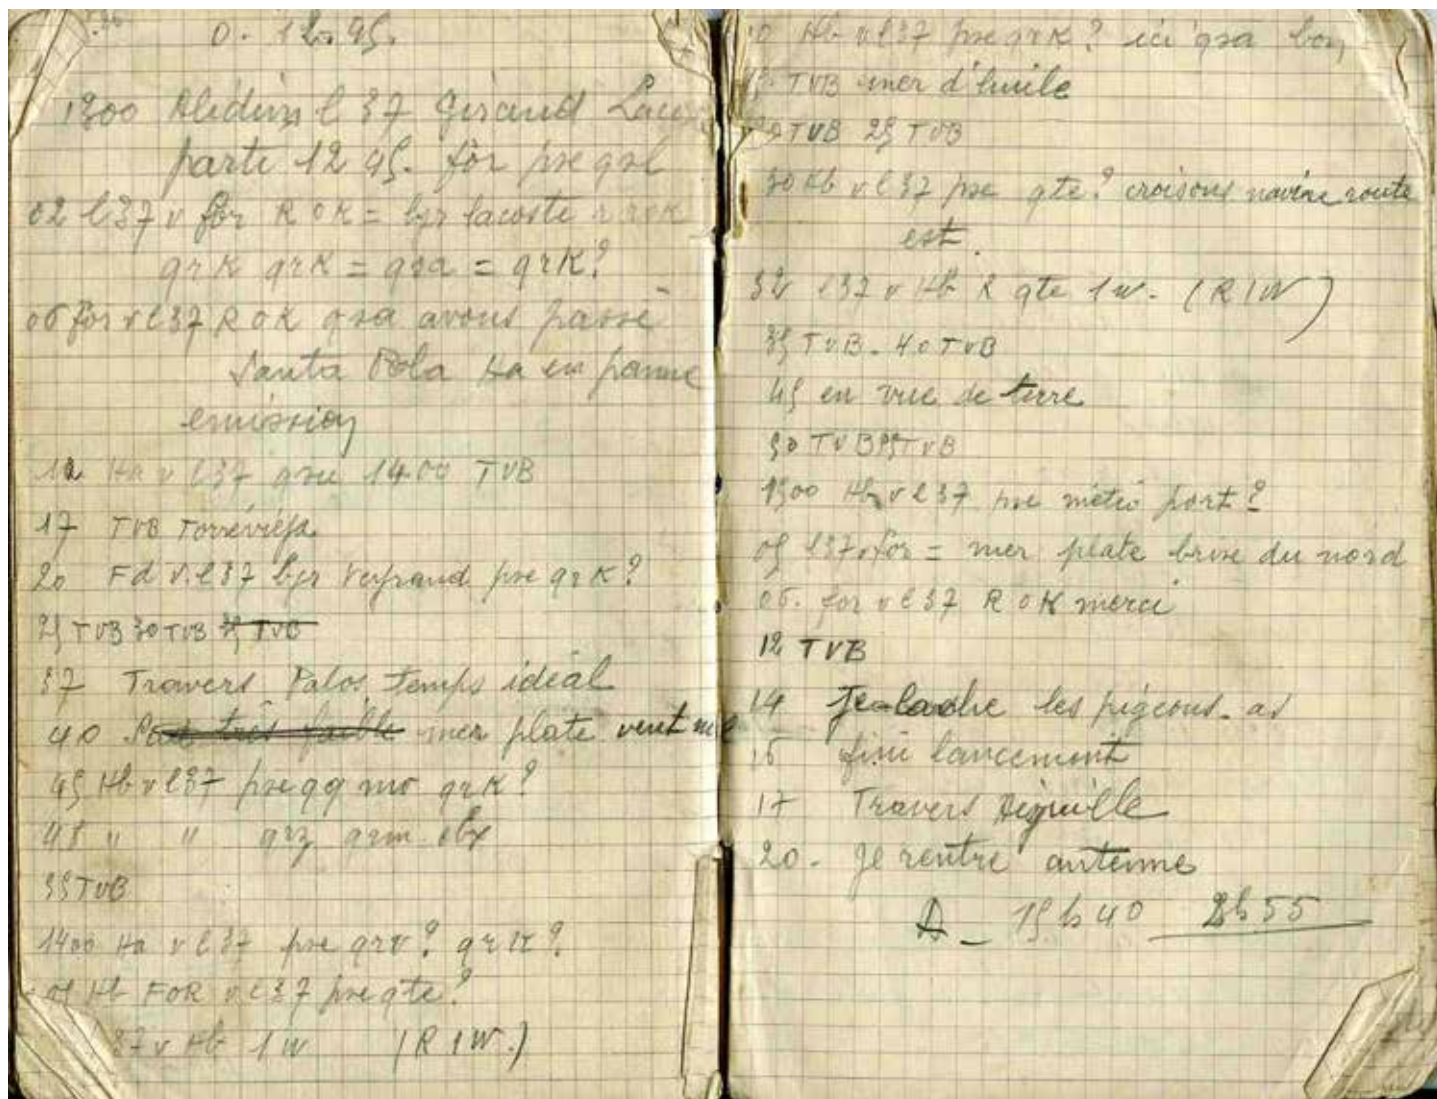 0. 12h 45.
1300 Aledim l 37 Giraud Lacos
parti 12 45. för pse qsl
02 l37 v för R OK = bjr lacoste r rok
qrk qrk = qsa = qrk?
06 för v l37 R OK qsa avons passé
Santa Pola Ha en panne
emission
12 Ha v l37 qru 1400 TVB
17 TVB Torreviéja
20 Fd v. l37 bjr Verfraud pse qrk?
25 TVB 30 TVB 35 TVB
37 Travers Palos. temps idéal
40 très faible mer plate vent nul
45 Hb v l37 pse qq mo qrk?
48 " " qrz qrm
55 TVB
1400 Ha v l37 pse qrv? qrk?
05 Hb FOR v l37 pse qte?
37 v Hb 1w (R 1W.)
10 Hb v l37 pse qrk? ici qsa bon
15 TVB mer d'huile
20 TVB 25 TVB
30 Hb v l37 pse qte? croisons navire route
est.
32 l37 v Hb R qte 1w. (R 1W)
35 TVB. 40 TVB
45 en vue de terre
50 TVB 55 TVB
1500 Hb v l37 pse météo port?
05 l37 v för = mer plate brise du nord
06. for v l37 R OK merci
12 TVB
14 Je lache les pigeons. as
16 fini lancement
17 Travers Aiguille
20. Je rentre antenne
A _ 15 h 40 2h 55